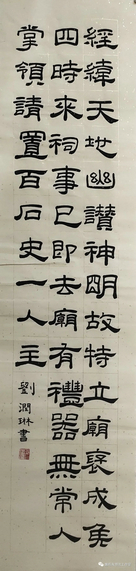 經緯天地幽讚神明故特立廟褒成侯
四時來祠事已即去廟有禮器無常人
掌領請置百石史一人主
劉潤琳書